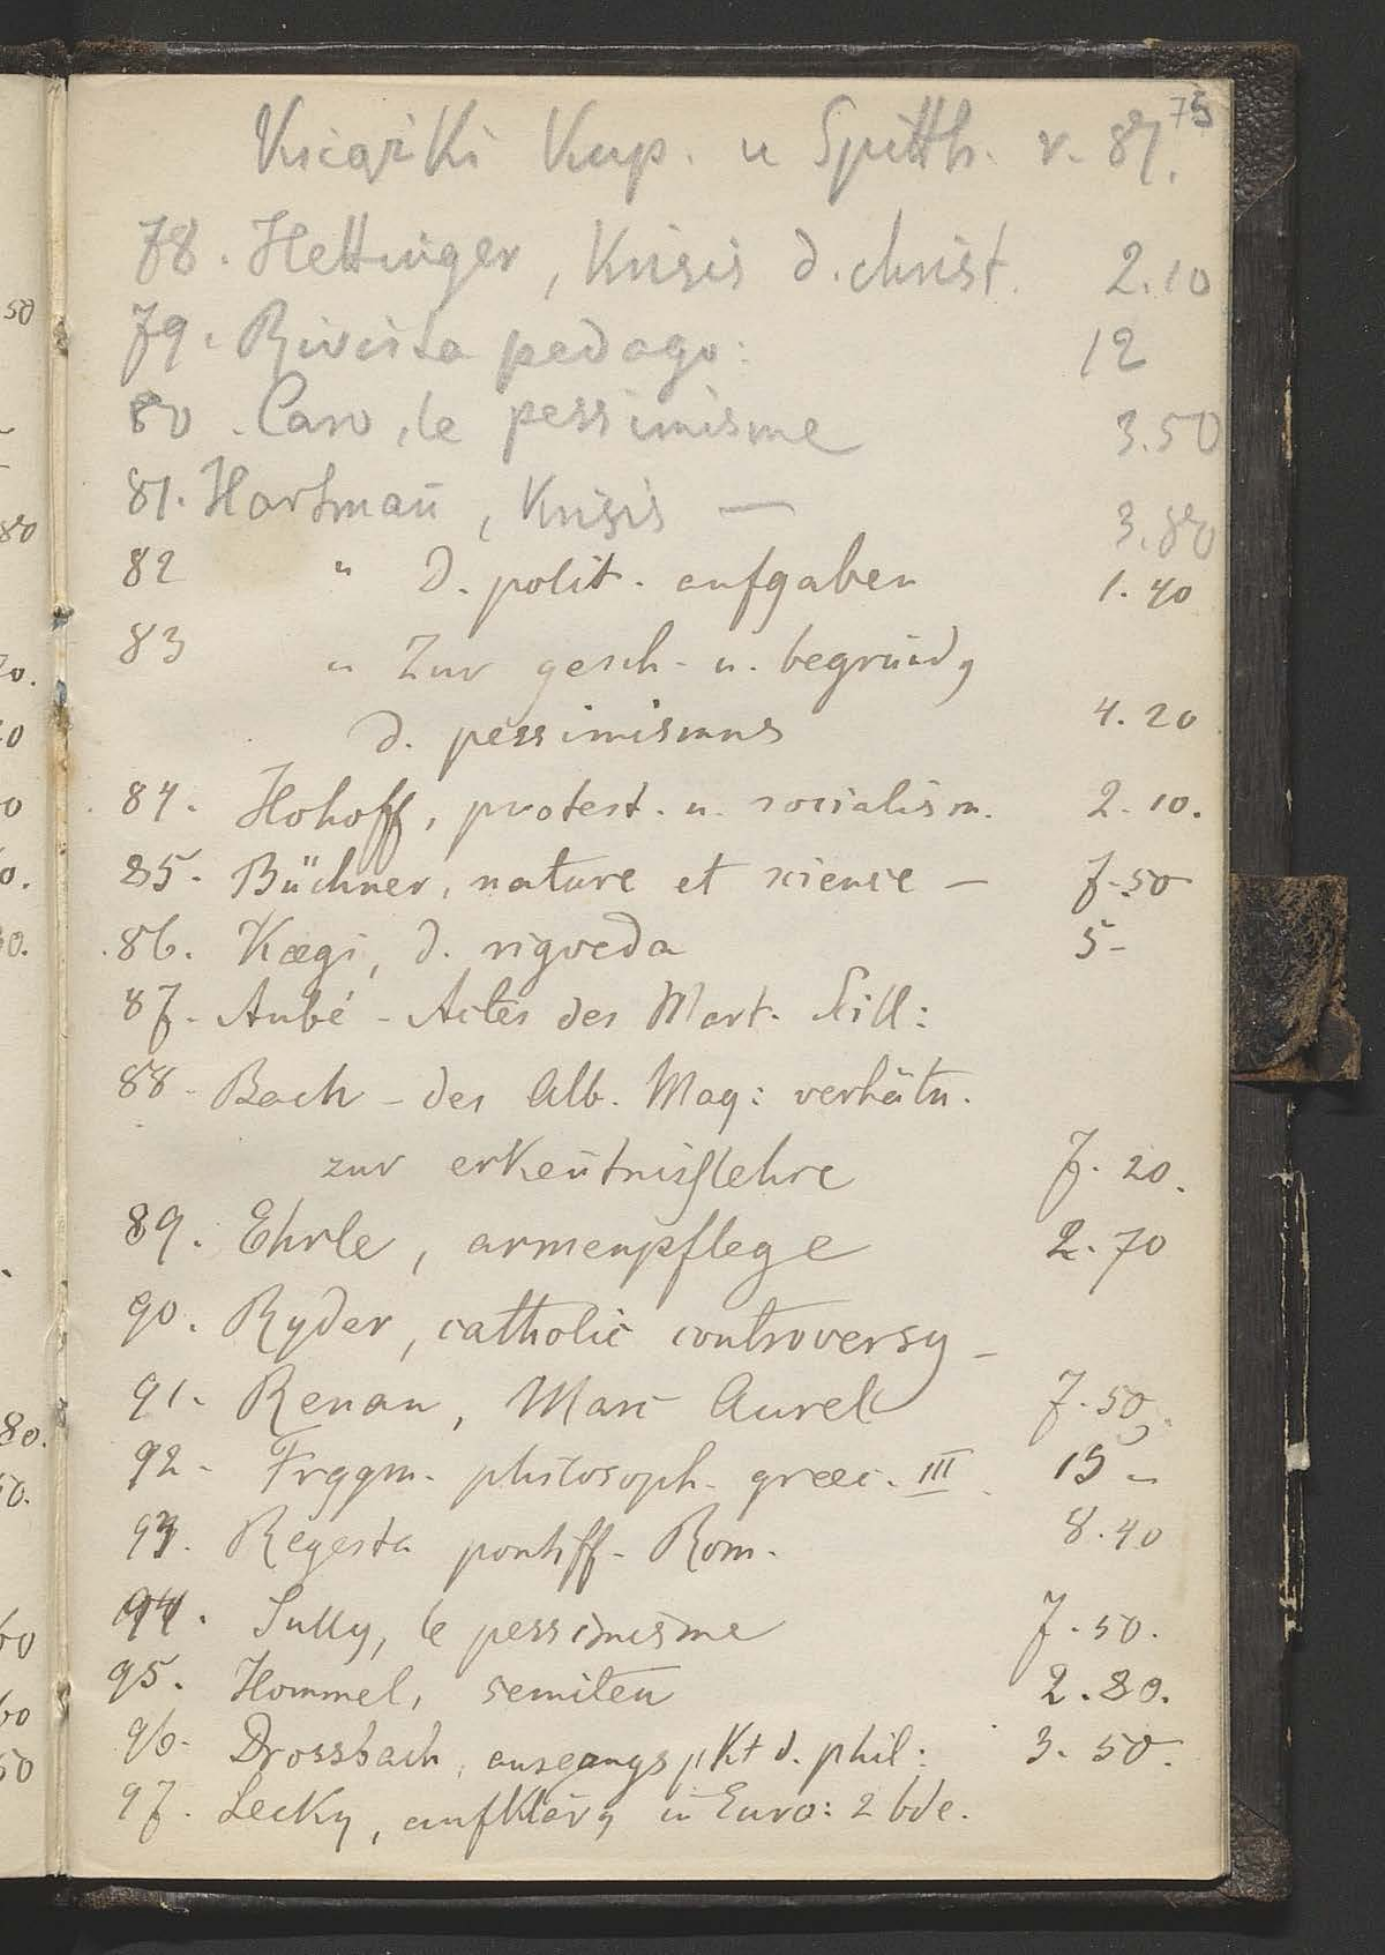 75
Książki Kup. u Spitth. r. 87.
78. Hettinger, Krisis d. christ. 2.10
79. Rivista pedago: 12
80. Caro, le pessimisme 3.50
81. Hartmañ, Krisis — 3.80
82 " d. polit. aufgaben 1.40
83 " Zur gesch. u. begründg
d. pessimismus 4.20
84. Hohoff, protest. u. socialism. 2.10.
85. Büchner, nature et science — 7.50
86. Kægi, d. rigveda 5-
87. Aubé - Actes des Mart. Scill:
88. Bach - des Alb. Mag: verhätn.
zur erkeñtnißlehre 7.20.
89. Ehrle, armenpflege 2.70
90. Ryder, catholic controversy -
91. Renan, Marc Aurel 7.50
92. Frggm. philosoph. græc. III. 15 -
93. Regesta pontiff. Rom. 8.40
94. Sully, le pessimisme 7.50.
95. Hommel, semiten 2.80.
96. Drossbach, ausgangspkt d. phil: 3.50.
97. Lecky, aufklärg in Euro: 2 bde.
50
80